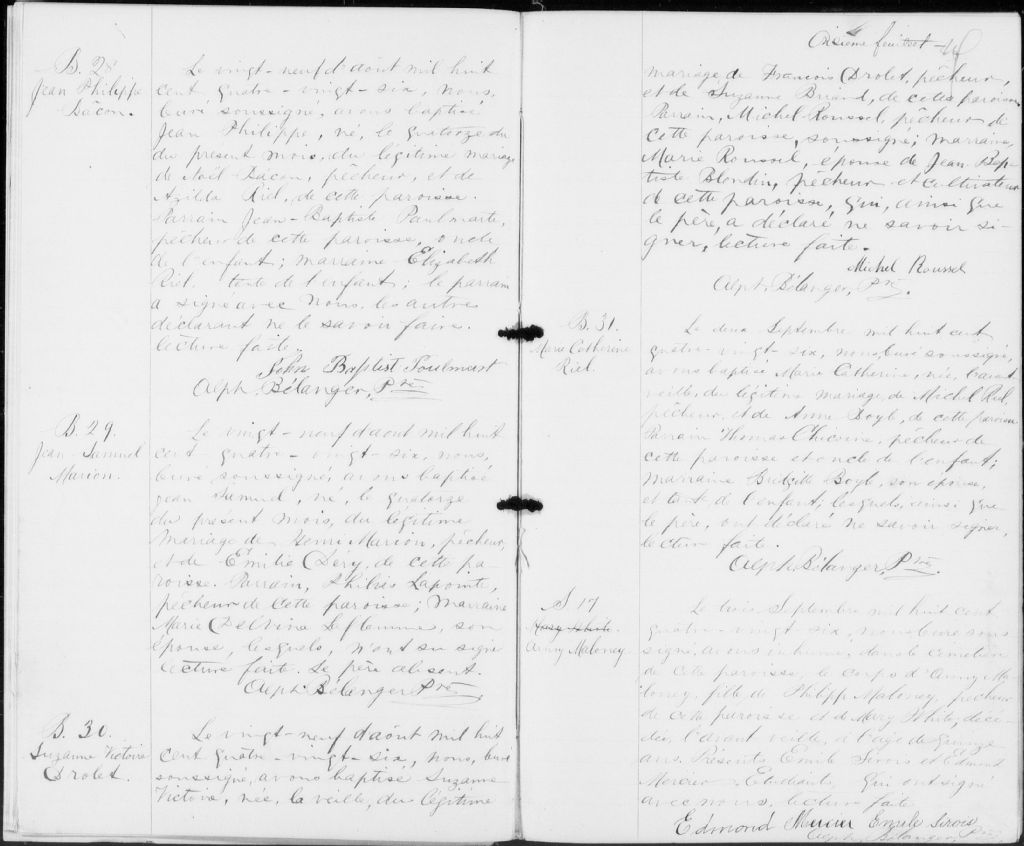 B. 28
Jean Philippe
Bâcon.
Le vingt-neuf d'août mil huit
cent quatre-vingt-six, nous,
curé soussigné, avons baptisé
Jean Philippe, né, le quatorze du
du present mois, du légitime mariage
de Noël Bâcon, pêcheur, et de
Azilda Riel, de cette paroisse.
Parrain Jean-Baptiste Paulmarte,
pêcheur de cette paroisse, oncle
de l'enfant; marraine Elizabeth
Riel, tante de l'enfant; le parrain
a signé avec nous, les autres
déclarant ne le savoir faire.
lecture faite.
John Baptist Poulmart
Alph. Bélanger, Ptre.
B. 29.
Jean-Samuel
Marion.
Le vingt-neuf d'août mil huit
cent quatre-vingt-six, nous,
curé soussigné, avons baptisé
Jean Samuel, né, le quatorze
du présent mois, du légitime
mariage de Henri Marion, pêcheur,
et de Emilie Déry, de cette pa-
roisse. Parrain, Lapointe,
pêcheur de cette paroisse; Marraine
Marie Delvina Leflemme, son
épouse, lesquels, n'ont su signer
lecture faite. Le père absent.
Alph. Bélanger Ptre.
B. 30.
Suzanne Victoire
Drolet.
Le vingt-neuf d'août mil huit
cent quatre-vingt-six, nous, curé
soussigné, avons baptisé Suzanne
Victoire, née, la veille, du légitime
Onzième feuillet
mariage, de Francois Drolet, pêcheur,
et de Suzanne Briand, de cette paroisse
Parrain, Michel Roussel, pêcheur de
cette paroisse, soussigné; marraine,
Marie Roussel, epouse de Jean Bap-
tiste Blondin, pêcheur et cultivateur
de cette paroisse, qui, ainsi que
le père, a déclaré ne savoir si-
gner, lecture faite.
Michel Roussel
Alph. Bélanger, Ptre.
B. 31.
Marie Catherine
Riel.
Le deux Septembre mil huit cent
quatre-vingt-six, nous, curé soussigné,
avons baptisé Marie Catherine, née, l'avant
veille, du légitime mariage, de Michel Riel
pêcheur, et de Anne Boyle, de cette paroisse
Parrain Thomas Chicoine, pêcheur de
cette paroisse et oncle de l'enfant;
Marraine Bridgitte Boyle, son epouse,
et tante de l'enfant; lesquels, ainsi que
le père, ont déclaré ne savoir signer,
lecture faite.
Alph. Bélanger, Ptre.
S 17
Mary White.
Anny Maloney
Le trois Septembre mil huit cent
quatre-vingt-six, nous, curé sous-
signé, avons inhumé, dans le cimetière
de cette paroisse, le corps d'Anny Ma-
loney, fille de Philipp Maloney, pêcheur
de cette paroisse et de Mary White, décé-
dée, l'avant veille, à l'age de quinze
ans. Présents Emile Sirois et Edmond
Mercier Etudiants, qui ont signé
avec nous, lecture faite
Edmond Mercier Emile Sirois
Alph. Bélanger, Ptre.